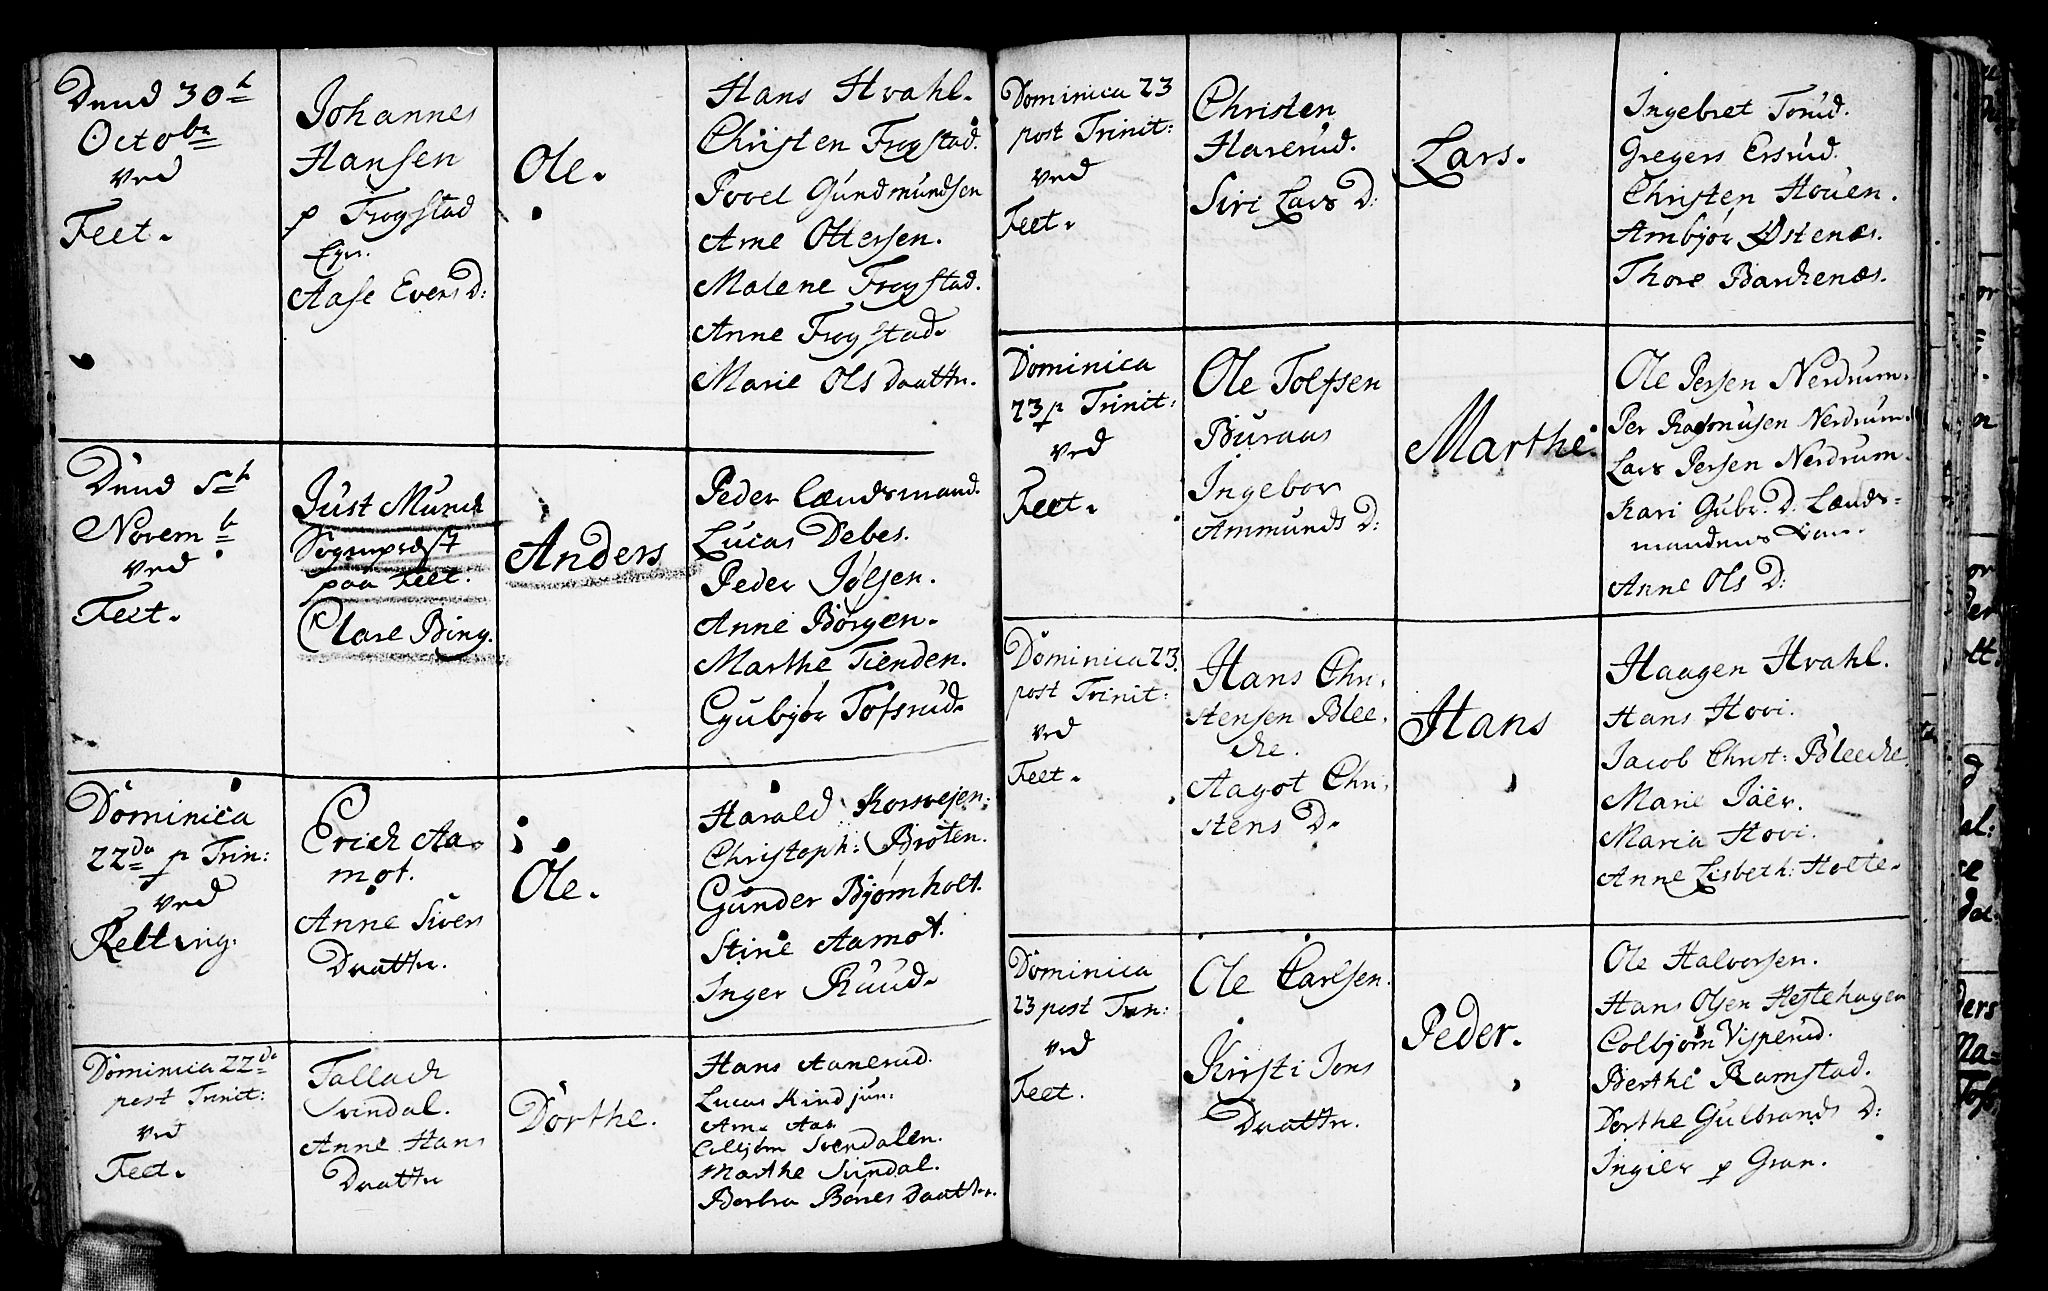 Dend 30th
Octobr
ved
Feet.
Johannes
Hansen
p Frogstad
Egn.
Aase Evens D:
Ole.
Hans Hvahl.
Christen Frogstad.
Povel Gundmundsen
Arne Ottersen.
Malene Frogstad.
Anne Frogstad.
Marie Ols Daattr.
Dend 5th
Novemb
ved
Feet.
Just Munch
Sogneprest
paa Feet.
Clare Bing.
Anders
Peder Lændsmand.
Lucas Debes.
Peder Jølsen.
Anne Børgen.
Marthe Tienden.
Gubjør Tofsrud.
Dominica
22da p Trin:
ved
Retting.
Erich Aa-
mot.
Anne Siver
Daattr.
Ole.
Harald Korsvejen:
Christoph: Broten.
Gunder Bjørnholt.
Stine Aamot.
Inger Ruud.
Dominica 22da
post Trinit:
ved
Feet.
Tallach
Svendal.
Anne Hans
Daattr
Dorthe.
Hans Aanerud.
Lucas Kindjun:
Arne Aas
Colbjørn Svendalen.
Marthe Svindal.
Berbra Bønes Daattr.
Dominica 23
post Trinit:
ved
Feet.
Christen
Harerud.
Siri Lars D:
Lars.
Ingebret Torud.
Gregers Ersrud.
Christen Houen.
Ambjør Østenæs.
Thore Barchenæs.
Dominica
23 p Trinit:
ved
Feet.
Ole Tolfsen
Buraas
Ingebor
Ammunds D:
Marthe.
Ole Persen Nerdrum.
Per Rasmusen Nerdrum.
Lars Persen Nerdrum.
Kari Gubr. D. Lænds-
mandens
Anne Ols D:
Dominica 23.
post Trinit:
ved
Feet.
Hans Chri-
stensen Blee-
che.
Aagot Chri-
stens D.
Hans
Haagen Hvahl.
Hans Hovi.
Jacob Christ: Bleeche.
Marie Jäer.
Maria Hovi.
Anne Lisbeth: Holte.
Dominica
23 post Trin:
ved
Feet.
Ole Carlsen.
Kirsti Jons
Daattr.
Peder.
Ole Halvorsen.
Hans Olsen Hestehagen
Colbjørn Visperud.
Berthe Ramstad.
Dorthe Gulbrands D:
Ingier p Gran.